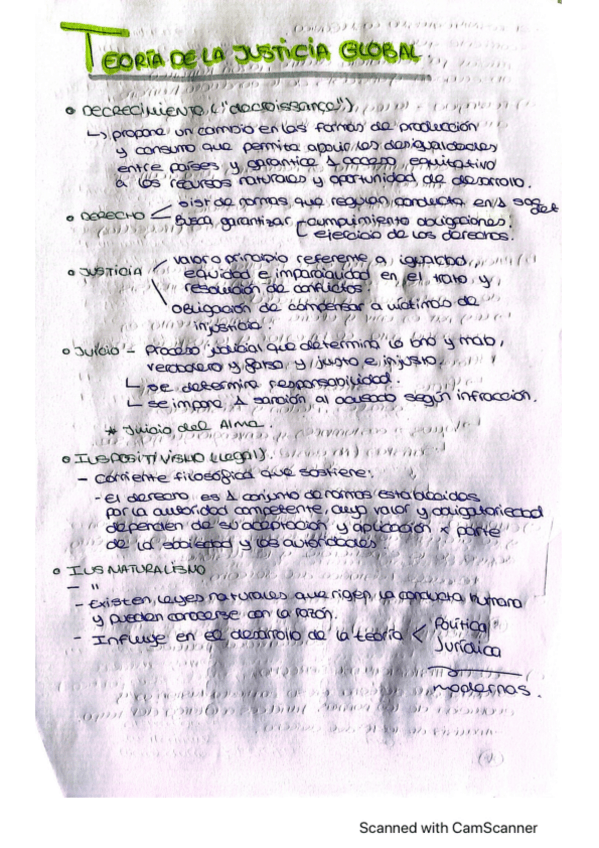 TEORÍA DE LA JUSTICIA GLOBAL
• DECRECIMIENTO ("decroissance")
↳ propone un cambio en las formas de producción
y consumo que permita paliar las desigualdades
entre países y garantice 1 acceso equitativo
a los recursos naturales y oportunidad de desarrollo.
• DERECHO < sist de normas que regulan conducta en 1 sociedad
Busca garantizar - cumplimiento obligaciones.
ejercicio de los derechos.
• JUSTICIA
valor o principio referente a igualdad,
equidad e imparcialidad en el trato y
resolución de conflictos.
obligación de compensar a víctimas de
injusticia.
• Juicio - Proceso judicial que determina lo bno y malo,
verdadero y falso y justo e injusto
↳ se determina responsabilidad.
↳ se impone 1 sanción al acusado según infracción.
* Juicio del Alma.
• IUSPOSITIVISMO (legal).
- corriente filosófica que sostiene:
- El derecho es 1 conjunto de normas establecidas
por la autoridad competente, cuyo valor y obligatoriedad
dependen de su aceptación y aplicación x parte
de la sociedad y las autoridades
• IUSNATURALISMO
- "
- Existen leyes naturales que rigen la conducta humana
y pueden conocerse con la razón.
- Influye en el desarrollo de la teoría < Política
Jurídica
modernas.
(1)
Scanned with CamScanner